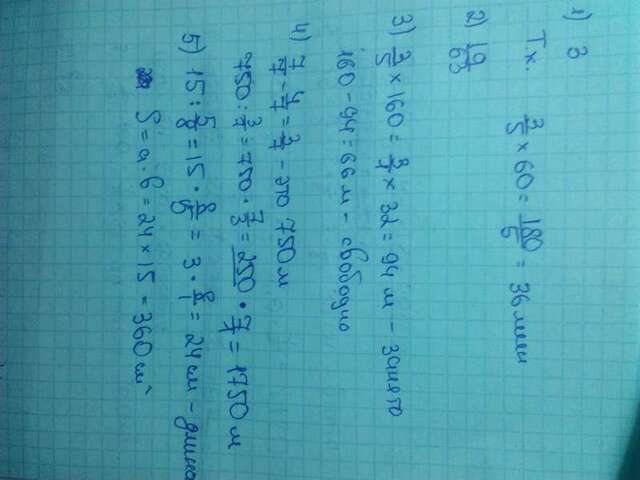 1) 3
Т.к. 3/5 × 60 = 180/5 = 36 мин
2) 19/63
3) 3/5 × 160 = 3/1 × 32 = 94 м - занято
160 - 94 = 66 м - свободно
4) 7/7 - 4/7 = 3/7 - это 750 м
750 : 3/7 = 750 · 7/3 = 250 · 7/1 = 1750 м
5) 15 : 5/8 = 15 · 8/5 = 3 · 8/1 = 24 см - длина
S = a · b = 24 × 15 = 360 см²